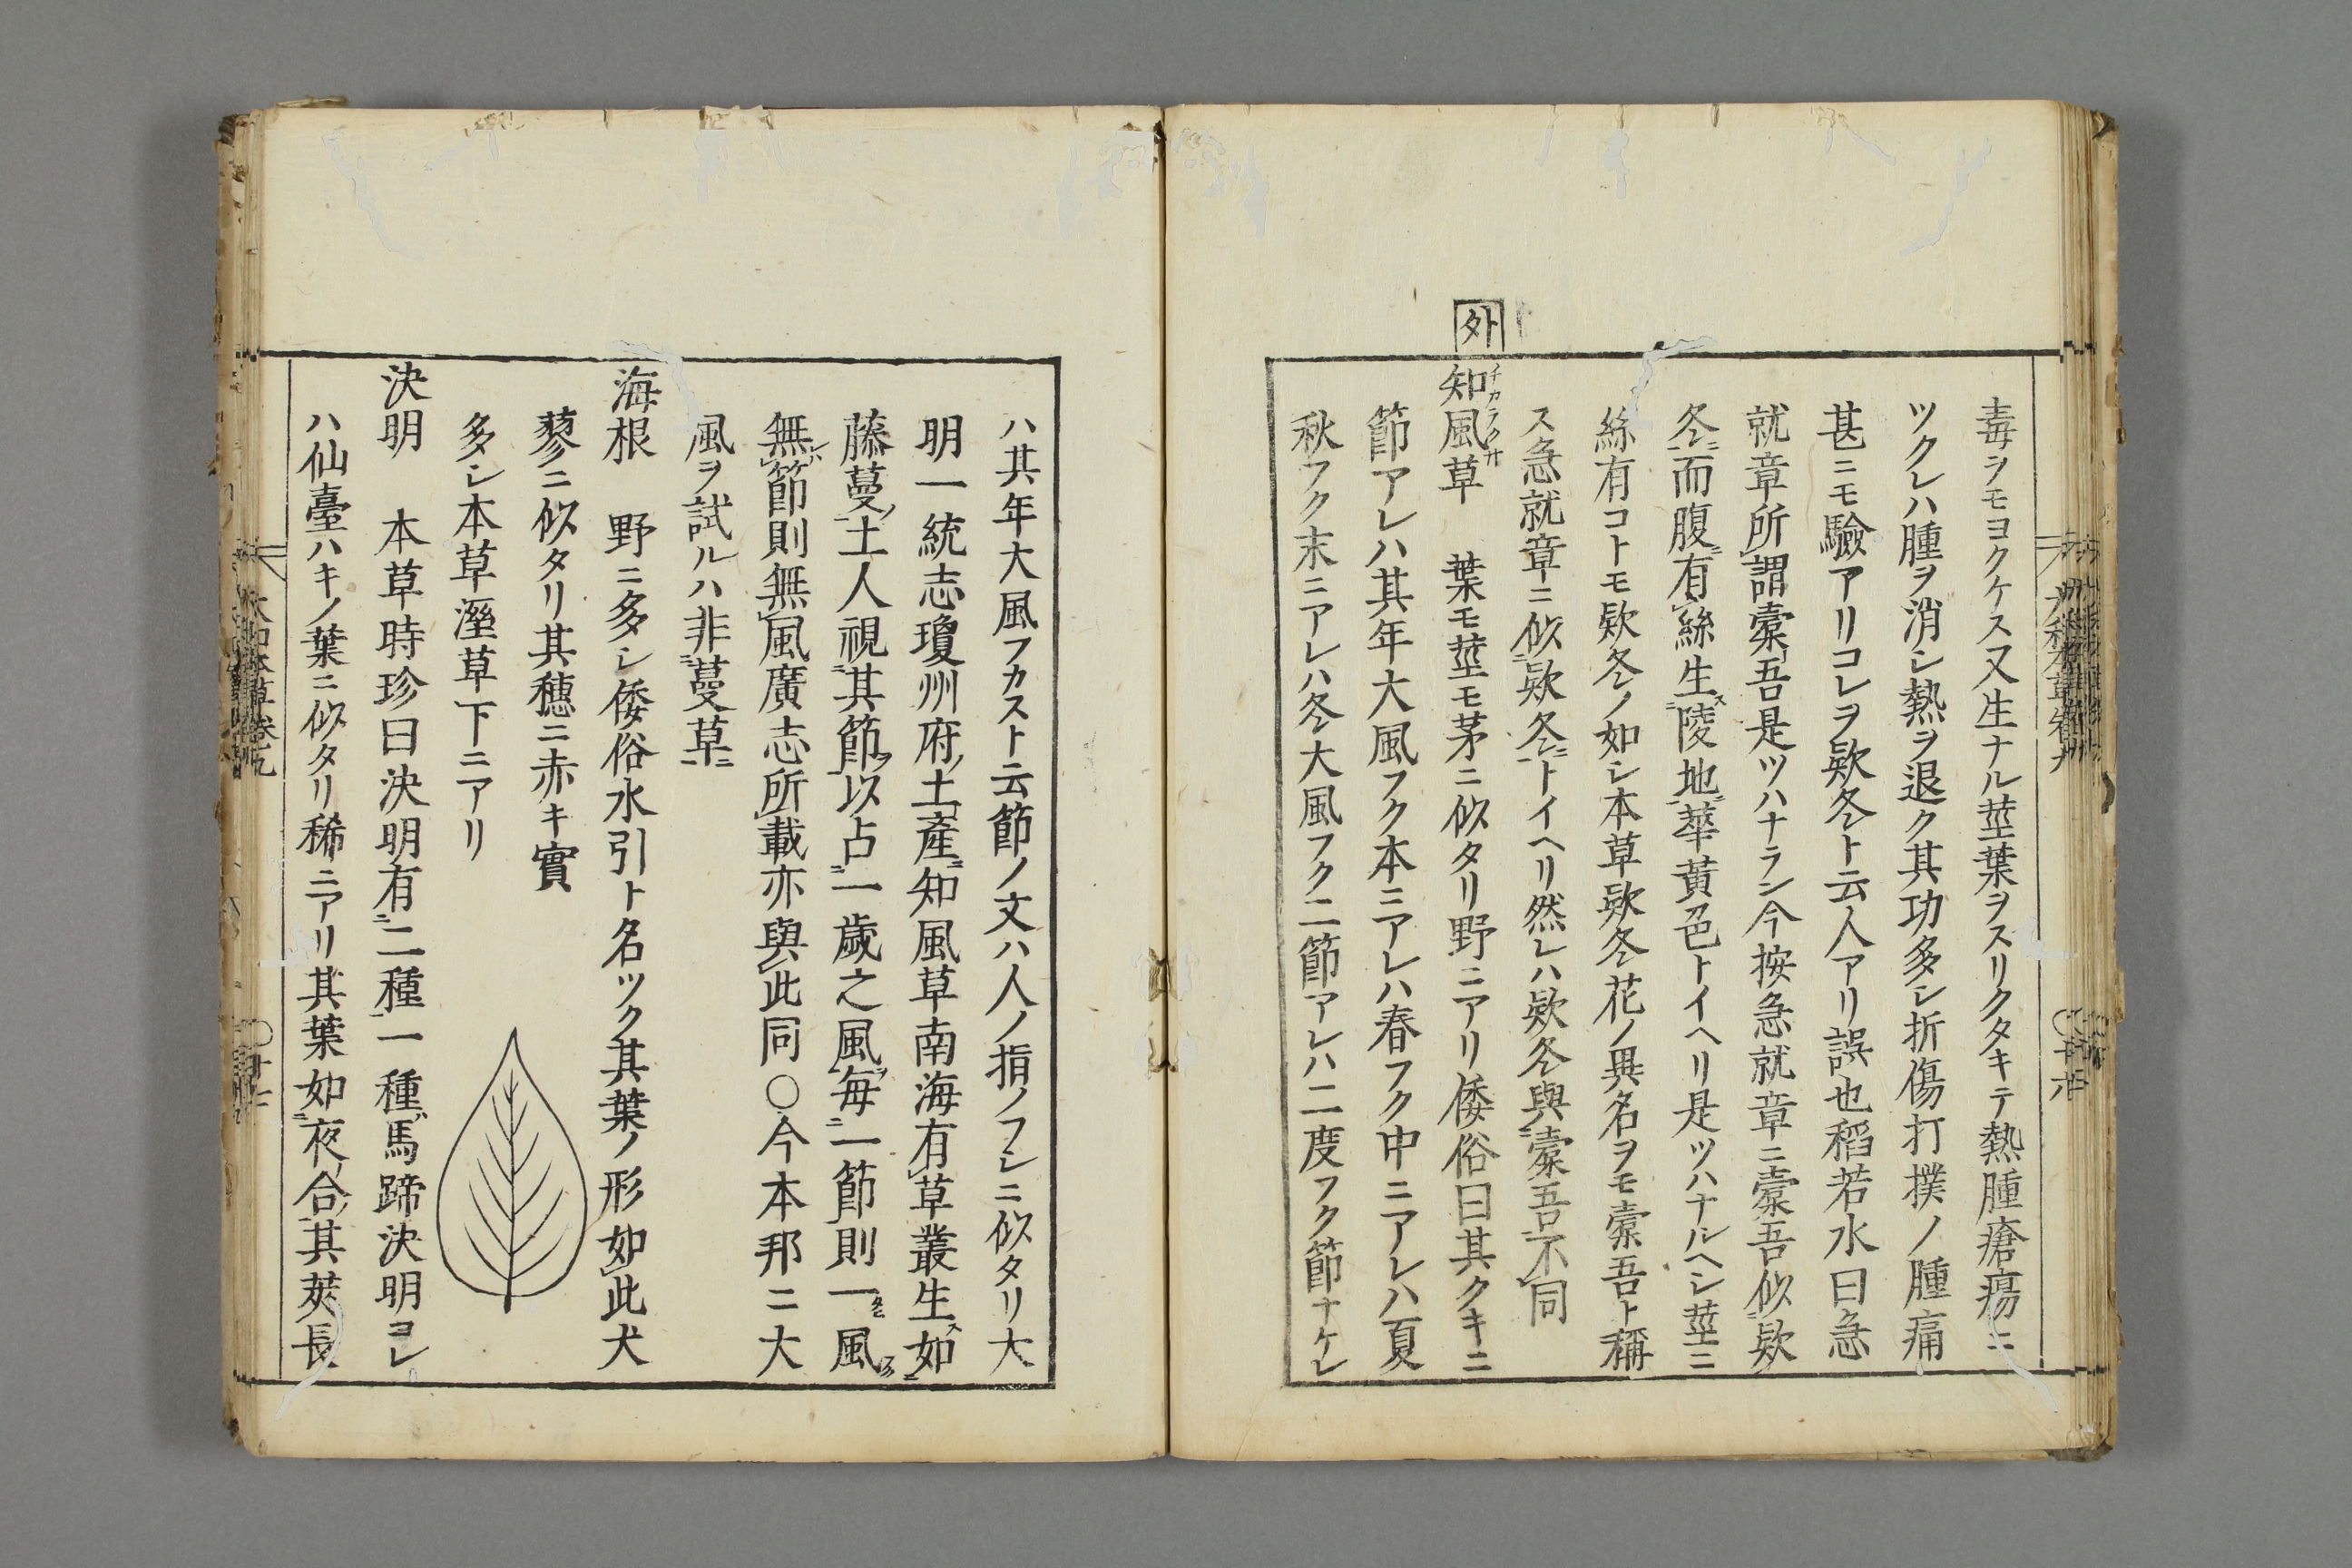 毒ヲモヨクケス又生ナル莖葉ヲスリクタキテ熱腫瘡瘍ニ
ツクレハ腫ヲ消シ熱ヲ退ク其功多シ折傷打撲ノ腫痛
甚ニモ驗アリコレヲ欵冬ト云人アリ誤也稻若水曰急
就章所謂橐吾是ツハナラシ今按急就章ニ橐吾似欵
冬ニ而腹有絲生陵地華黃色トイヘリ是ツハナルヘシ莖ニ
絲有コトモ欵冬ノ如シ本草欵冬花ノ異名ヲモ橐吾ト稱
ス急就章ニ似欵冬トイヘリ然レハ欵冬與橐吾不同
外
知風草 葉モ莖モ茅ニ似タリ野ニアリ倭俗曰其クキニ
チカラクサ
節アレハ其年大風フク本ニアレハ春フク中ニアレハ夏
秋フク末ニアレハ冬大風フク二節アレハ二度フク節ナケレ
ハ其年大風フカスト云節ノ文ハ人ノ指ノフシニ似タリ大
明一統志瓊州府ノ土產ニ知風草南海有草叢生ス如
藤蔓ノ土人視其節ヲ以占一歲之風ヲ每一節則一風
無節則無風廣志所載亦與此同○今本邦ニ大
風ヲ試ルハ非蔓草ニ
海根 野ニ多シ倭俗水引ト名ツク其葉ノ形如此犬
蓼ニ似タリ其穗ニ赤キ實
多シ本草溼草下ニアリ
決明 本草時珍曰決明有二種一種ハ馬蹄決明ヨシ
ハ仙臺ハキノ葉ニ似タリ稀ニアリ其葉如夜合ノ其莢長